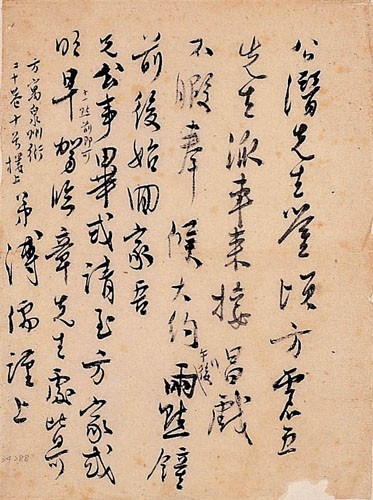 公潛先生鑒頃方震五
先生派車来接唱戲
不暇奉候大約午後兩點鐘
前後始回家吾
兄公事畢或請至方家或
十點前即可
明早駕臨章先生處皆可
弟溥儒謹上
方寓泉州街
二十巷十号樓上